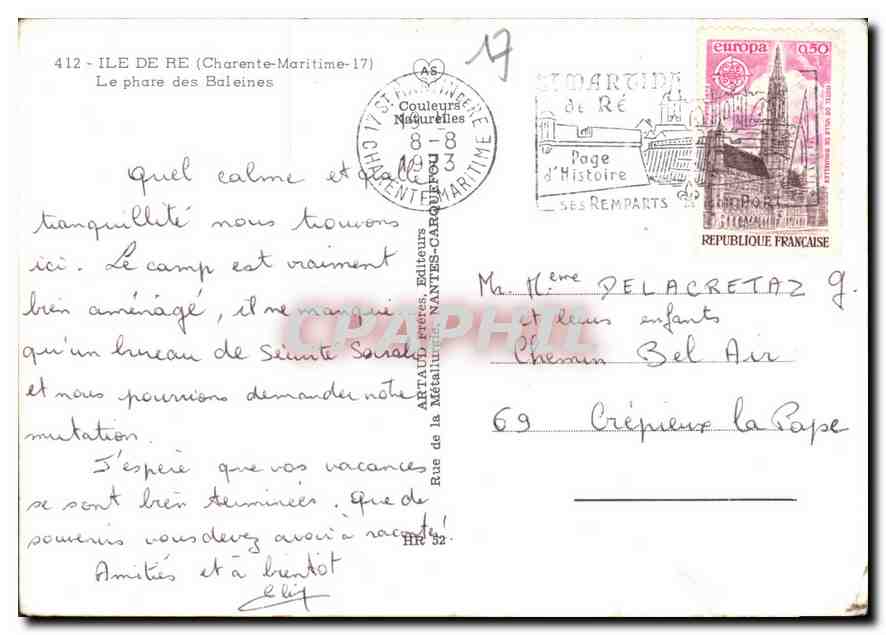 412 - ILE DE RE (Charente-Maritime-17)
Le phare des Baleines
AS
Couleurs
Naturelles
17
17 ST MARTIN DE RE
8-8
1973
CHARENTE MARITIME
ST MARTIN
de RÉ
Page
d'Histoire
SES REMPARTS
PORT
europa 0,50
HOTEL DE VILLE DE BRUXELLES
REPUBLIQUE FRANÇAISE
Quel calme et quelle
tranquillité nous trouvons
ici. Le camp est vraiment
bien aménagé, il ne manque
qu'un bureau de Sécurité Sociale
et nous pourrions demander notre
mutation.
J'espère que vos vacances
se sont bien terminées. Que de
souvenirs vous devez avoir à raconter!
Amitiés et à bientôt
ARTAUD Frères, Editeurs
Rue de la Métallurgie, NANTES-CARQUEFOU
HR 52
Mr. Mème DELACRETAZ G.
et leurs enfants
Chemin Bel Air
69 Crépieux la Pape
CPAPHIL